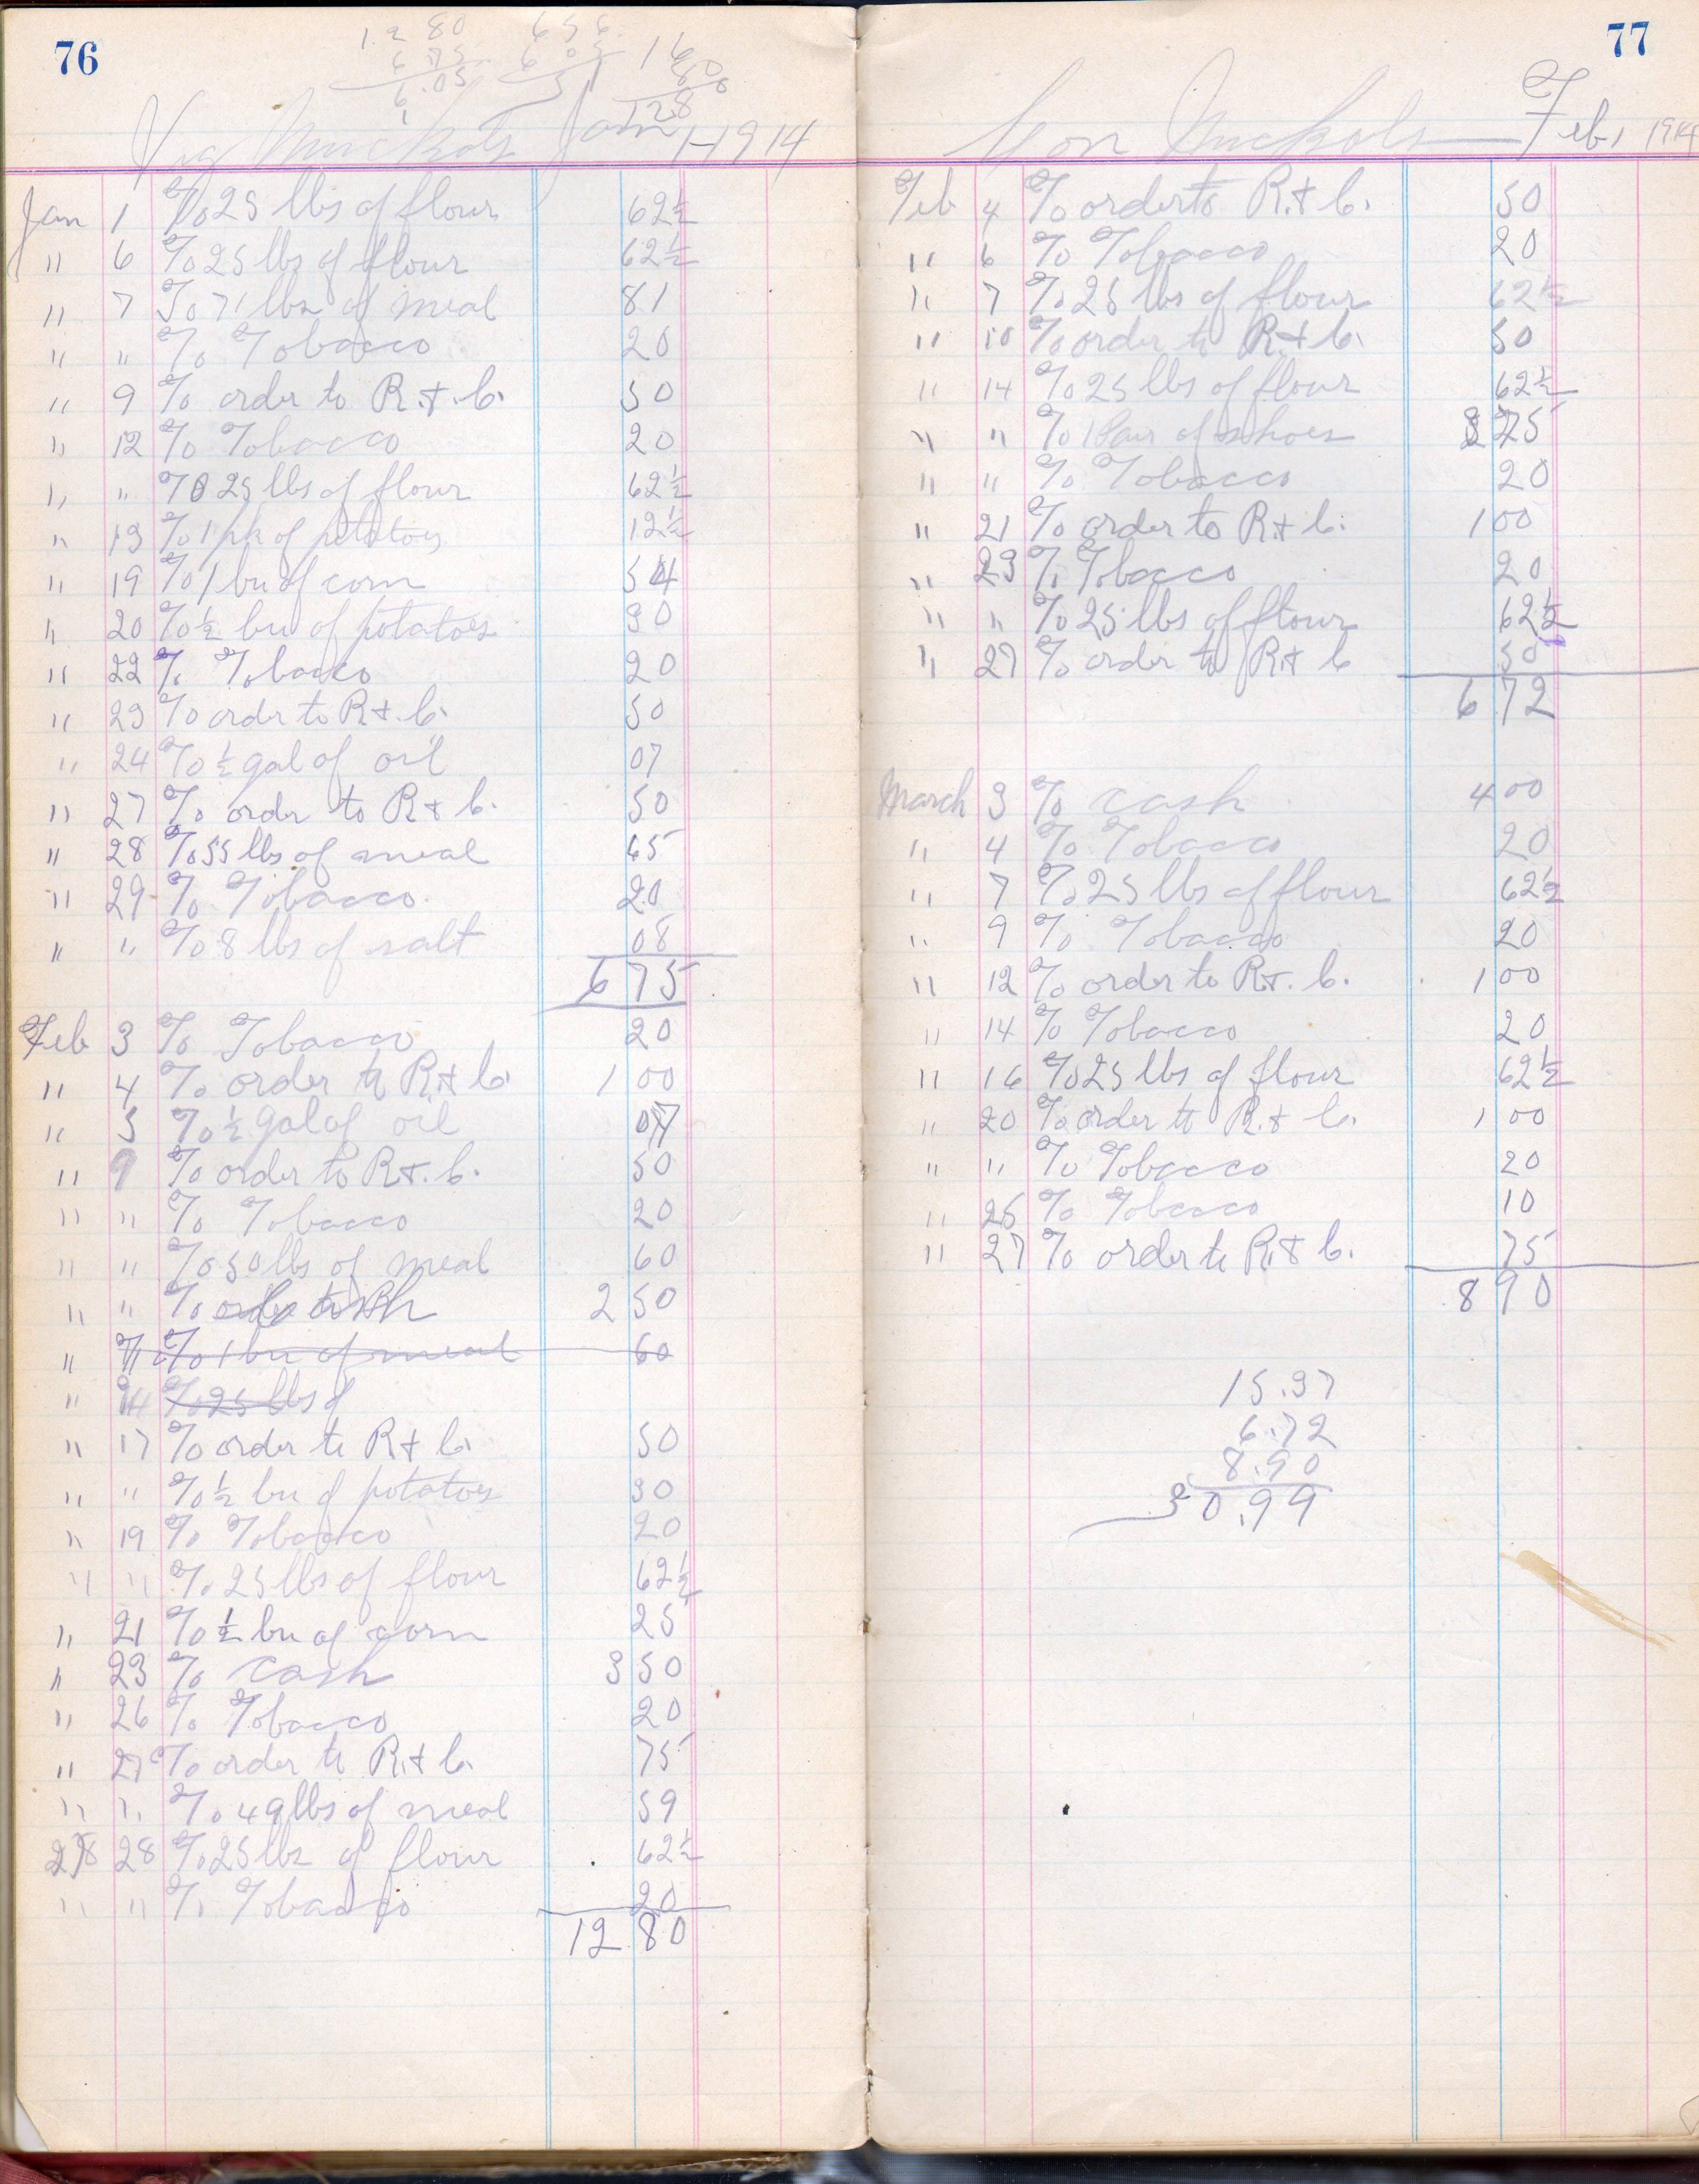 76
12 80
6 75
6.05
Nuckols Jan 1-1914
Jan 1 To 25 lbs of flour 62½
" 6 To 25 lbs of flour 62½
" 7 To 71 lbs of meal 81
" " To Tobacco 20
" 9 To order to R. & C. 50
" 12 To Tobacco 20
" " To 25 lbs of flour 62½
" 13 To 1 pk of potatoes 12½
" 19 To 1 bu of corn 54
" 20 To ½ bu of potatoes 30
" 22 To Tobacco 20
" 23 To order to R & C. 50
" 24 To ½ gal of oil 07
" 27 To order to R & C. 50
" 28 To 55 lbs of meal 65
" 29 To Tobacco 20
" " To 8 lbs of salt 08
6 75
Feb 3 To Tobacco 20
" 4 To order to R & C. 1 00
" 5 To ½ gal of oil 07
" 9 To order to R & C. 50
" " To Tobacco 20
" " To 50 lbs of meal 60
" " To 2 50
" To 1 bu of meal 60
" To 25 lbs of
" 17 To order to R & C. 50
" " To ½ bu of potatoes 30
" 19 To Tobacco 20
" " To 25 lbs of flour 62½
" 21 To ½ bu of corn 25
" 23 To Cash 3 50
" 26 To Tobacco 20
" 27 To order to R & C. 75
" " To 49 lbs of meal 59
28 28 To 25 lbs of flour 62½
" " To Tobacco 20
12 80
77
Nuckols Feb, 1914
Feb 4 To order to R. & C. 50
" 6 To Tobacco 20
" 7 To 25 lbs of flour 62½
" 10 To order to R & C. 50
" 14 To 25 lbs of flour 62½
" " To 1 Pair of shoes 2 25
" " To Tobacco 20
" 21 To order to R & C. 1 00
" 23 To Tobacco 20
" " To 25 lbs of flour 62½
" 27 To order to R & C 50
6 72
March 3 To cash 4 00
" 4 To Tobacco 20
" 7 To 25 lbs of flour 62½
" 9 To Tobacco 20
" 12 To order to R & C. 1 00
" 14 To Tobacco 20
" 16 To 25 lbs of flour 62½
" 20 To order to R. & C. 1 00
" " To Tobacco 20
" 26 To Tobacco 10
" 27 To order to R. & C. 75
8 90
15.37
6.72
8.90
30.99